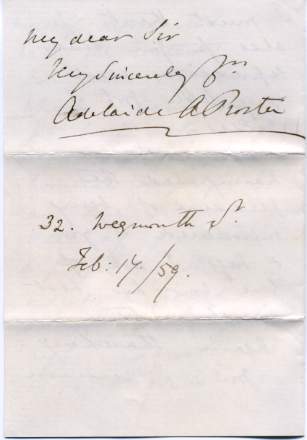 My dear Sir
Very Sincerely Yrs
Adelaide A Procter
32. Weymouth St
Feb: 14/59.